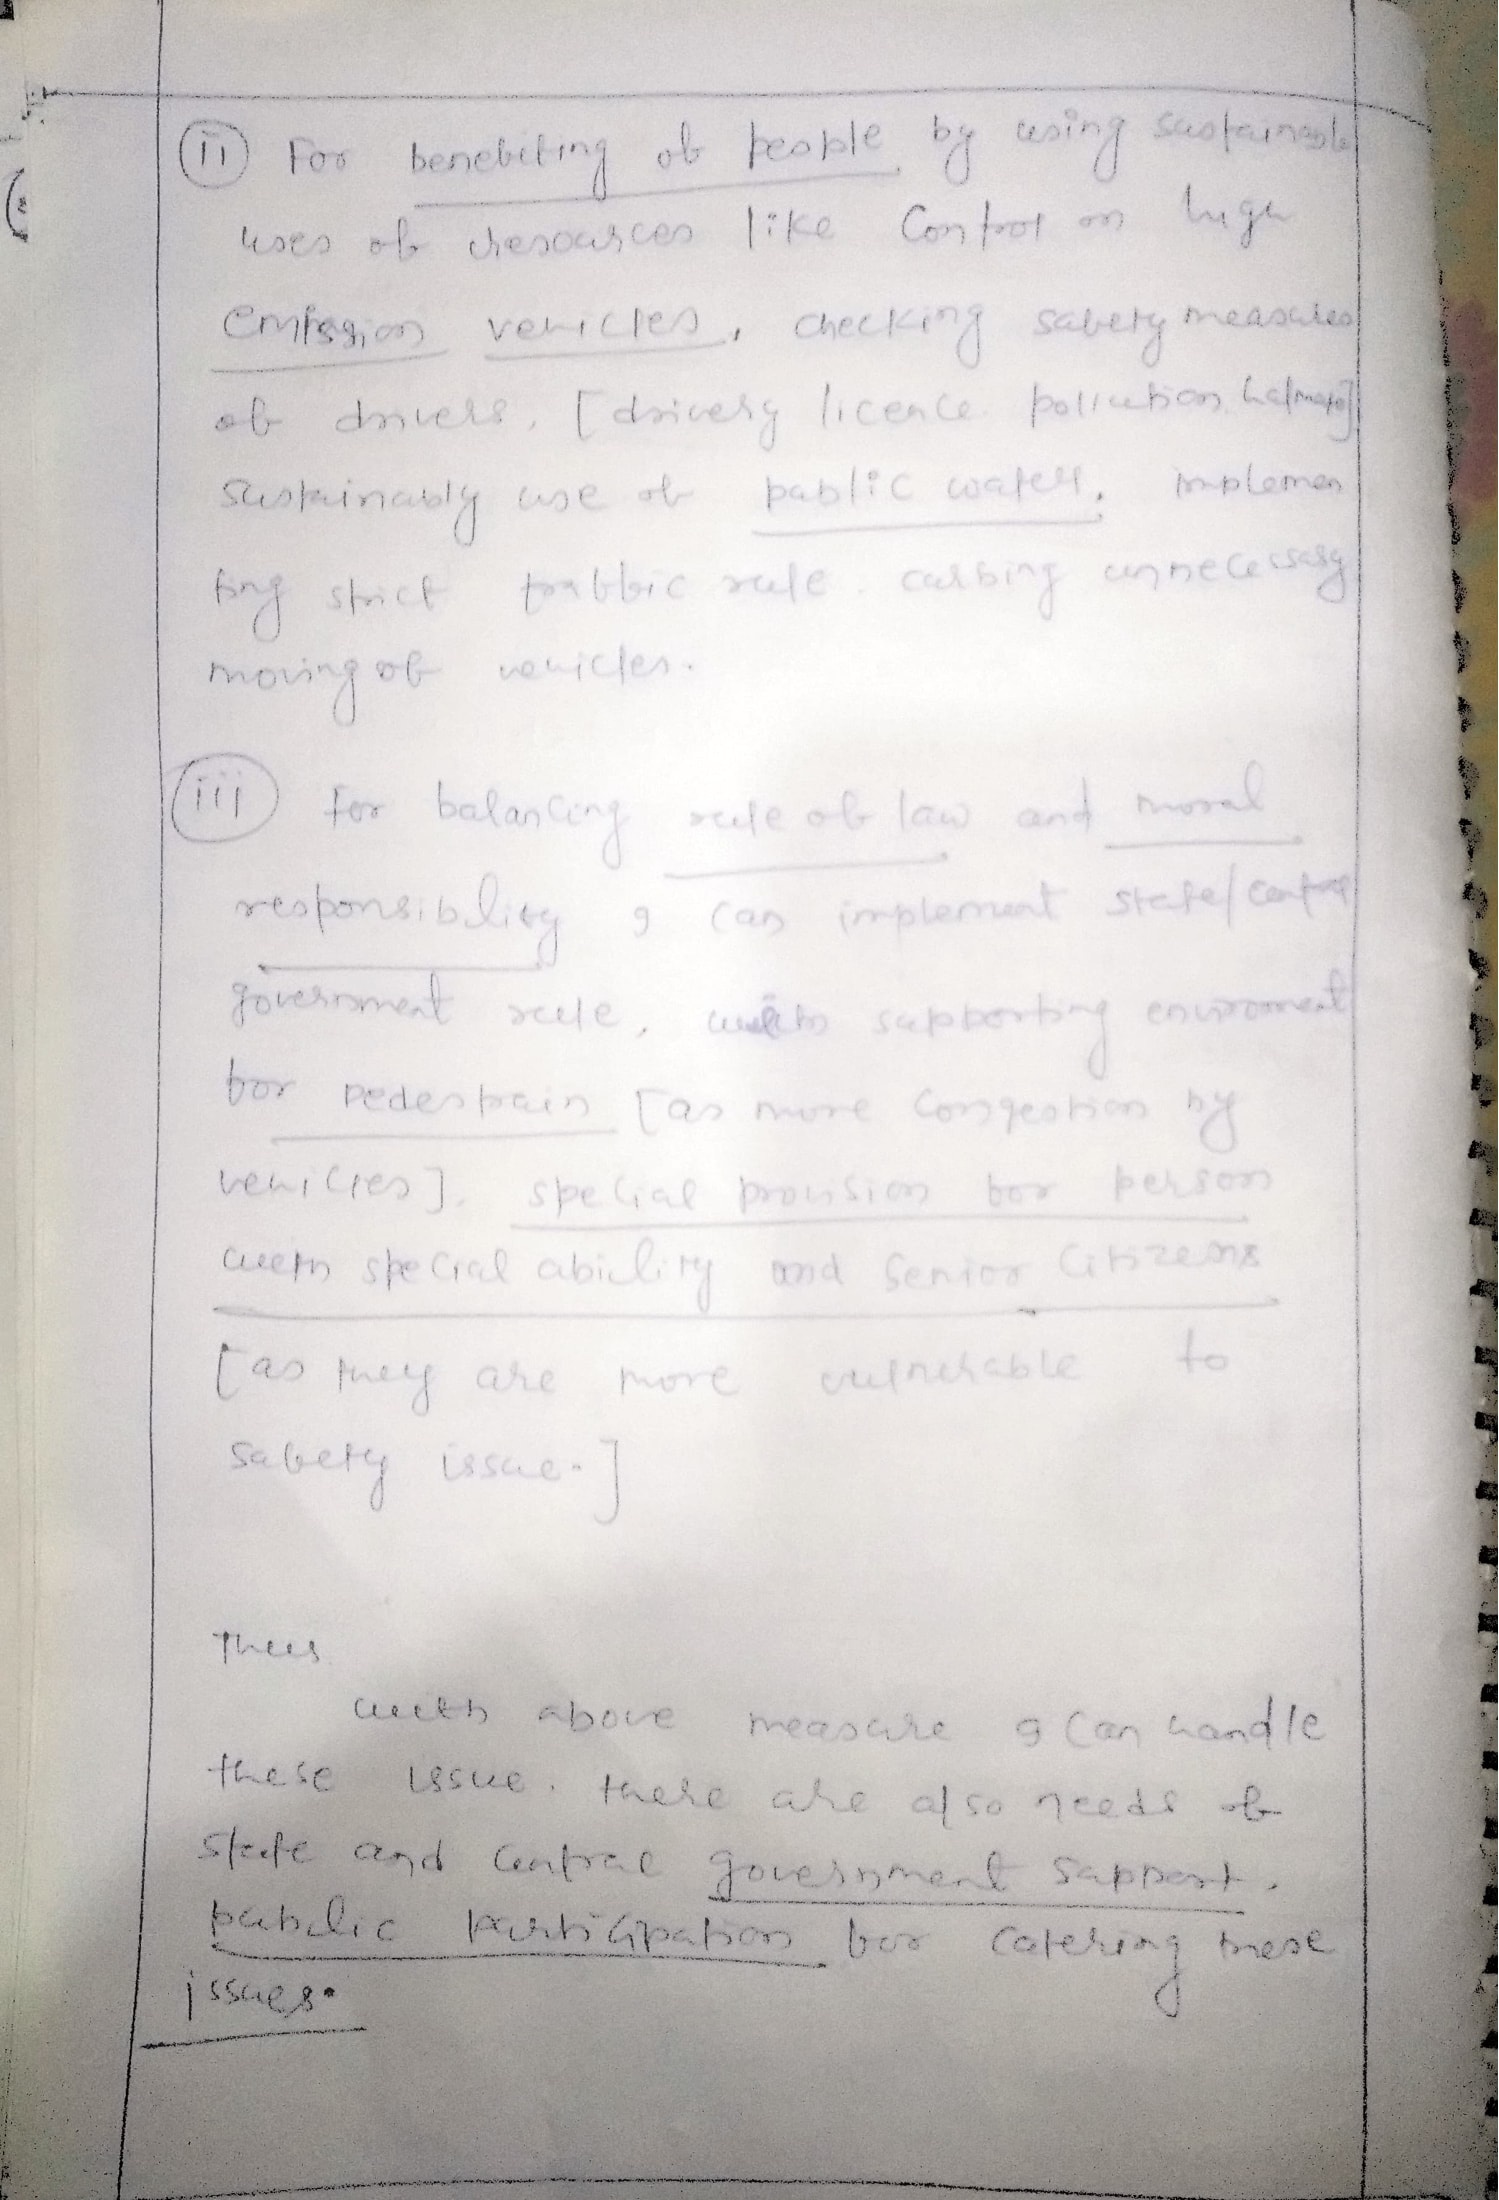 (ii) For benefiting of people by using sustainable
uses of resources like Control on high
emission vehicles, checking safety measures
of drivers, [drivery licence pollution halmate]
sustainably use of public water, implemen
ting strict traffic rule. curbing unnecessary
moving of vehicles.
(iii) for balancing rule of law and moral
responsibility I can implement state/central
government rule, with supporting enviroment
for pedestrain [as more congestion by
vehicles]. special provision for person
with special ability and Senior Citizens
[as they are more vulnerable to
safety issue.]
Thus
with above measure I can handle
these issue. there are also needs of
state and central government support,
public participation for catering these
issues.